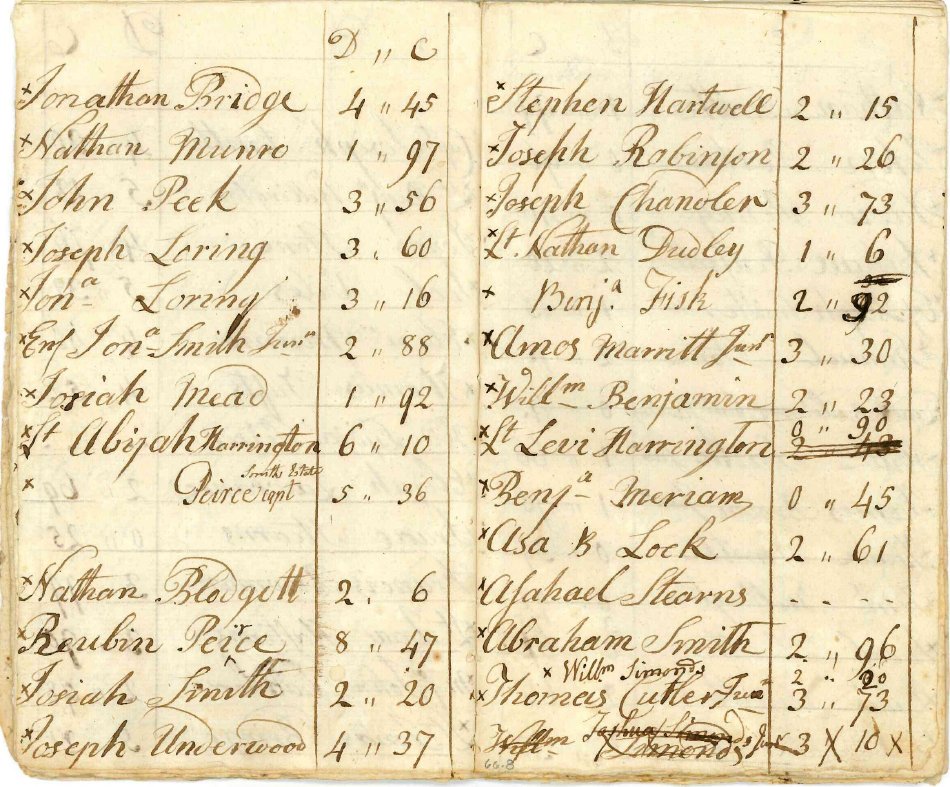 D " C
×Jonathan Bridge 4 " 45
×Nathan Munro 1 " 97
×John Peek 3 " 56
×Joseph Loring 3 " 60
×Jonᵃ Loring 3 " 16
×Enſ Jonᵃ Smith Junʳ 2 " 88
×Josiah Mead 1 " 92
×Lt Abijah Harrington 6 " 10
Smiths Estate
× Peirce capt 5 " 36
×Nathan Blodgett 2 " 6
×Reubin Peirce 8 " 47
×Josiah Smith 2 " 20
×Joseph Underwood 4 " 37
×Stephen Hartwell 2 " 15
×Joseph Robinſon 2 " 26
×Joseph Chandler 3 " 73
×Lt Nathan Dudley 1 " 6
× Benjᵃ Fisk 2 " 92
×Amos Marritt Junʳ 3 " 30
×Willᵐ Benjamin 2 " 23
0 " 90
×Lt Levi Harrington 2 " 43
×Benjᵃ Meriam 0 " 45
×Asa B Lock 2 " 61
×Aſahael Stearns - - - -
×Abraham Smith 2 " 96
× Willᵐ Simonds 2 " 20
×Thomas Cutler Junʳ 3 " 73
Joshua
Willᵐ Simonds Junʳ 3 × 10 ×
66-8